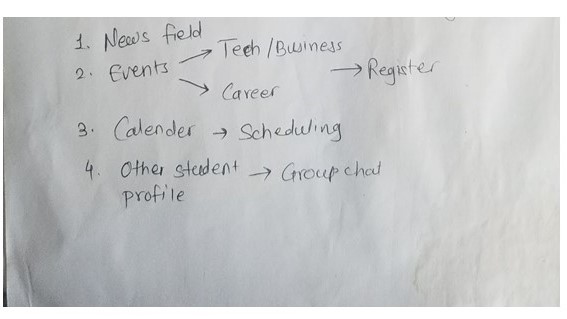 1. News field
2. Events → Tech/Business
→ Career → Register
3. Calender → Scheduling
4. Other student → Group chat
profile